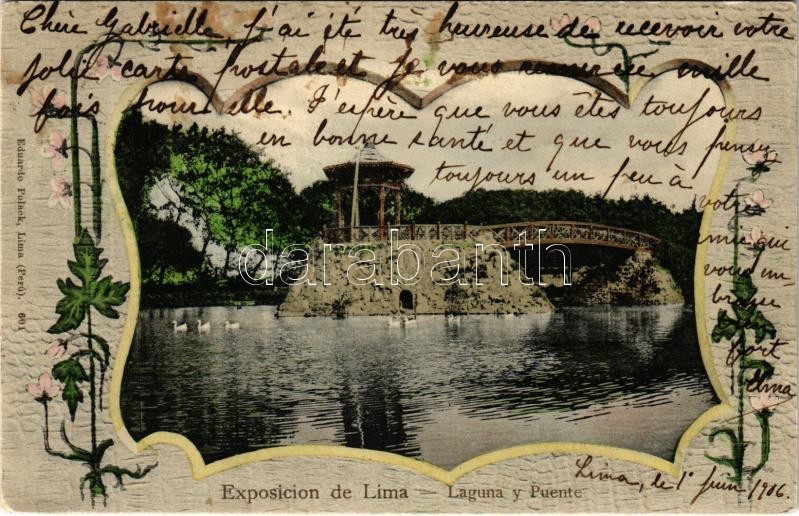 Chère Gabrielle, j'ai été très heureuse de recevoir votre
jolie carte postale et je vous remercie mille
fois pour elle. J'espère que vous êtes toujours
en bonne santé et que vous pensez
toujours un peu à
votre
amie qui
vous em-
brasse
bien fort
Lima, le 1º Juin 1906
Exposicion de Lima — Laguna y Puente
Eduardo Polack, Lima (Perú). 601
darabanth